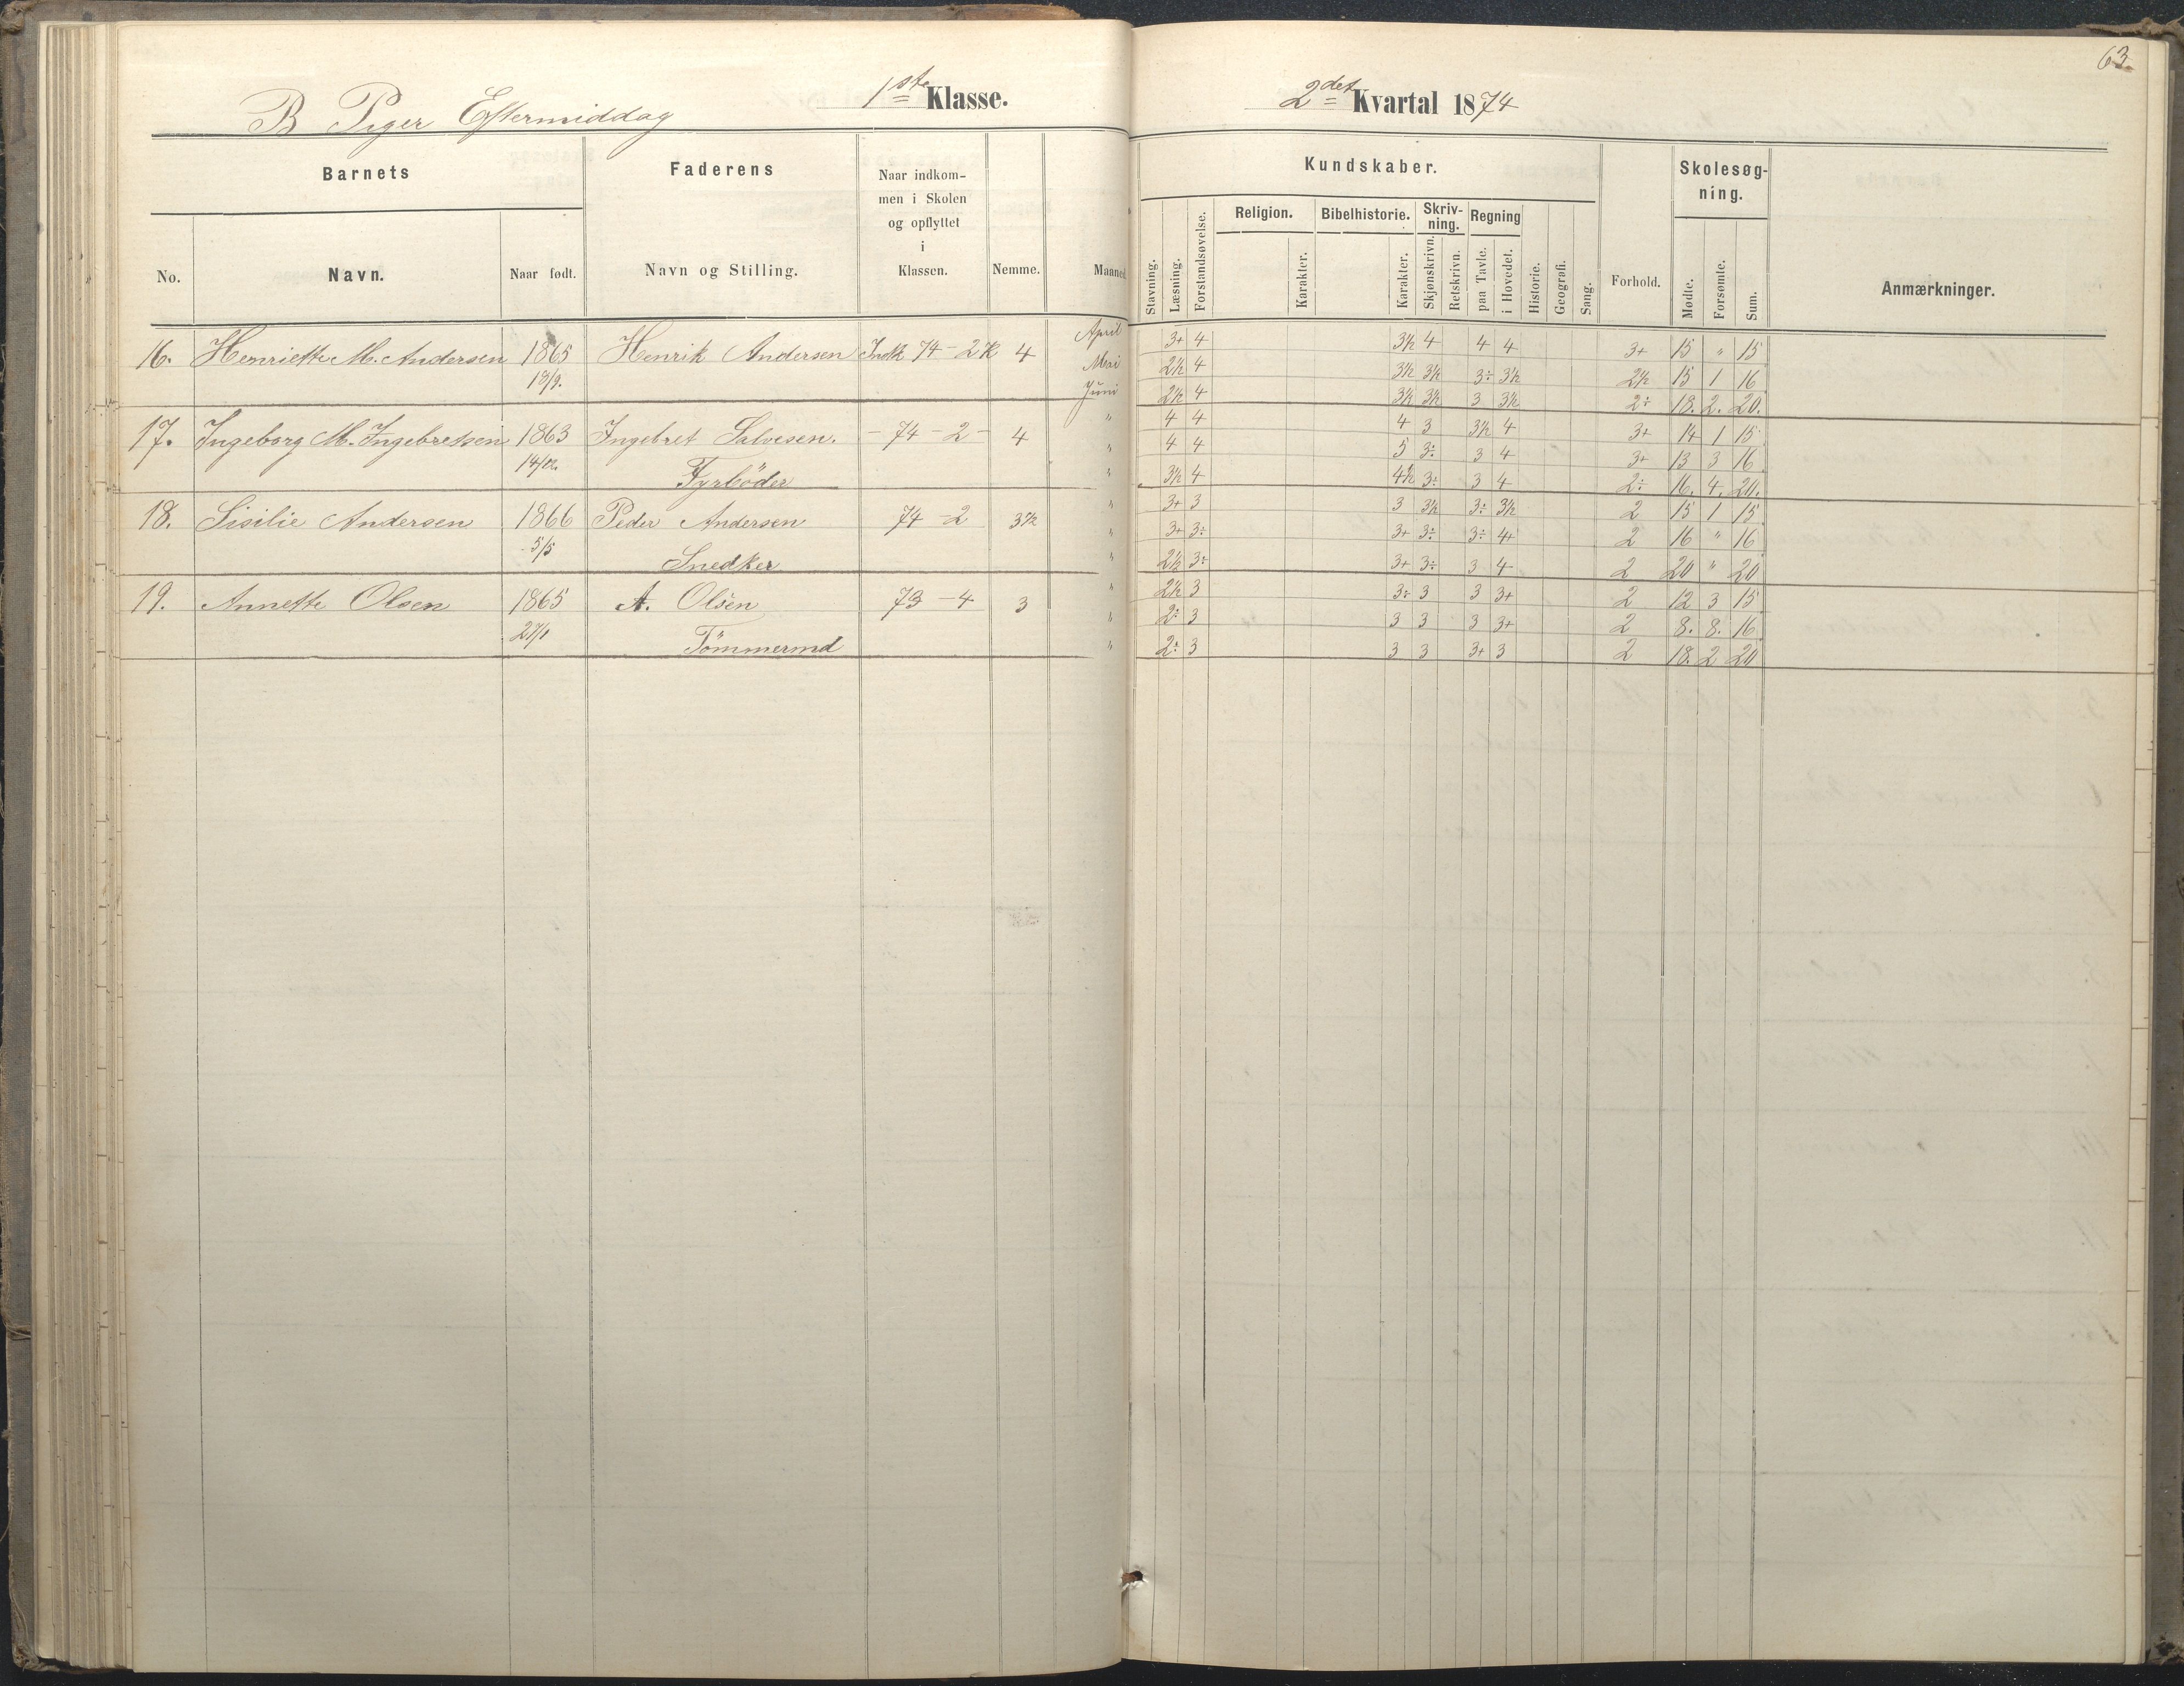 63.
B Piger Eftermiddag 1ste Klasse. 2det Kvartal 1874
Barnets Faderens Naar indkommen i Skolen og opflyttet i Klassen. Nemme. Maaned
No. Navn. Naar født. Navn og Stilling.
Kundskaber. Forhold. Skolesøgning. Anmærkninger.
Stavning. Læsning. Forstandsøvelse. Religion. Karakter. Bibelhistorie. Karakter. Skrivning. Skjønskrivn. Retskrivn. Regning paa Tavle. i Hovedet. Historie. Geografi. Sang. Mødte. Forsømte. Sum.
16. Henriette M. Andersen 1865 Henrik Andersen Indk 74-2K 4 April 3+ 4 3½ 4 4 4 3+ 15 " 15
18/9. Mai 2½ 4 3½ 3½ 3÷ 3½ 2½ 15 1 16
Juni 2½ 4 3½ 3½ 3 3½ 2÷ 18. 2. 20.
17. Ingeborg M. Ingebretsen 1863 Ingebret Salvesen. - 74 - 2 - 4 " 4 4 4 3 3½ 4 3+ 14 1 15
" 4 4 5 3÷ 3 4 3+ 13 3 16
Fyrbøder " 3½ 4 4½ 3÷ 3 4 2÷ 16. 4. 20.
18. Sisilie Andersen 1866 Peder Andersen 74-2 3½ " 3+ 3 3 3½ 3÷ 3½ 2 15 1 15
5/5 " 3+ 3÷ 3+ 3÷ 3÷ 4+ 2 16 " 16
Snedker " 2½ 3÷ 3+ 3÷ 3 4 2 20 " 20
19. Annette Olsen 1865 A. Olsen 73-4 3 " 2½ 3 3÷ 3 3 3+ 2 12 3 15
27/1 " 2÷ 3 3 3 3 3+ 2 8. 8. 16
Tömmermd " 2÷ 3 3 3 3+ 3 2 18. 2 20